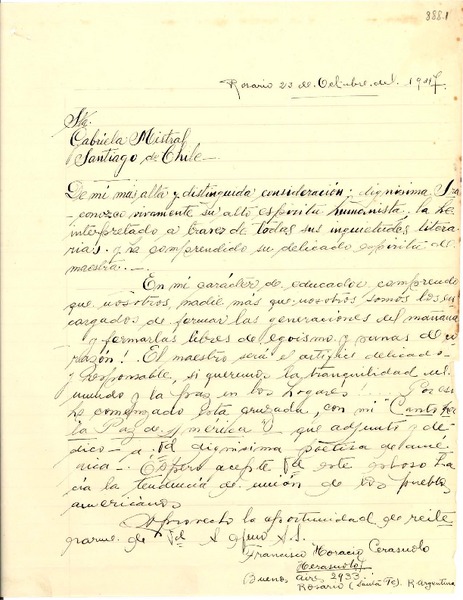 3881
Rosario 23 de Octubre del 1947.
Sta.
Gabriela Mistral
Santiago de Chile
De mi más alta y distinguida consideración; dignísima Sra
conozco vivamente su alto espíritu humanista. la he
interpretado a travez de todas sus inquietudes litera
rias. y he comprendido su delicado espíritu de
maestra.
En mi carácter de educador comprendo
que nosotros, nadie más que nosotros somos los en
cargados de formar las generaciones del mañana
y formarlas libres de egoismo y sanas de co
razón! El maestro será el artífice delicado
y Responsable, si queremos la tranquilidad del
mundo y la Paz en los hogares! Por eso
he comenzado esta cruzada, con mi Canto por
la Paz de America que adjunto y de
dico a Vd dignísima poetisa de amé
rica. Espero acepte Vd este ha
cia la tendencia de unión de los pueblos
americanos
Aprovecho la oportunidad de reite
rarme de Vd S. S.
Francisco Horacio Cerasuolo
(Cerasuolo)
Buenos Aires 2933.
Rosario (Santa Fe). R. Argentina